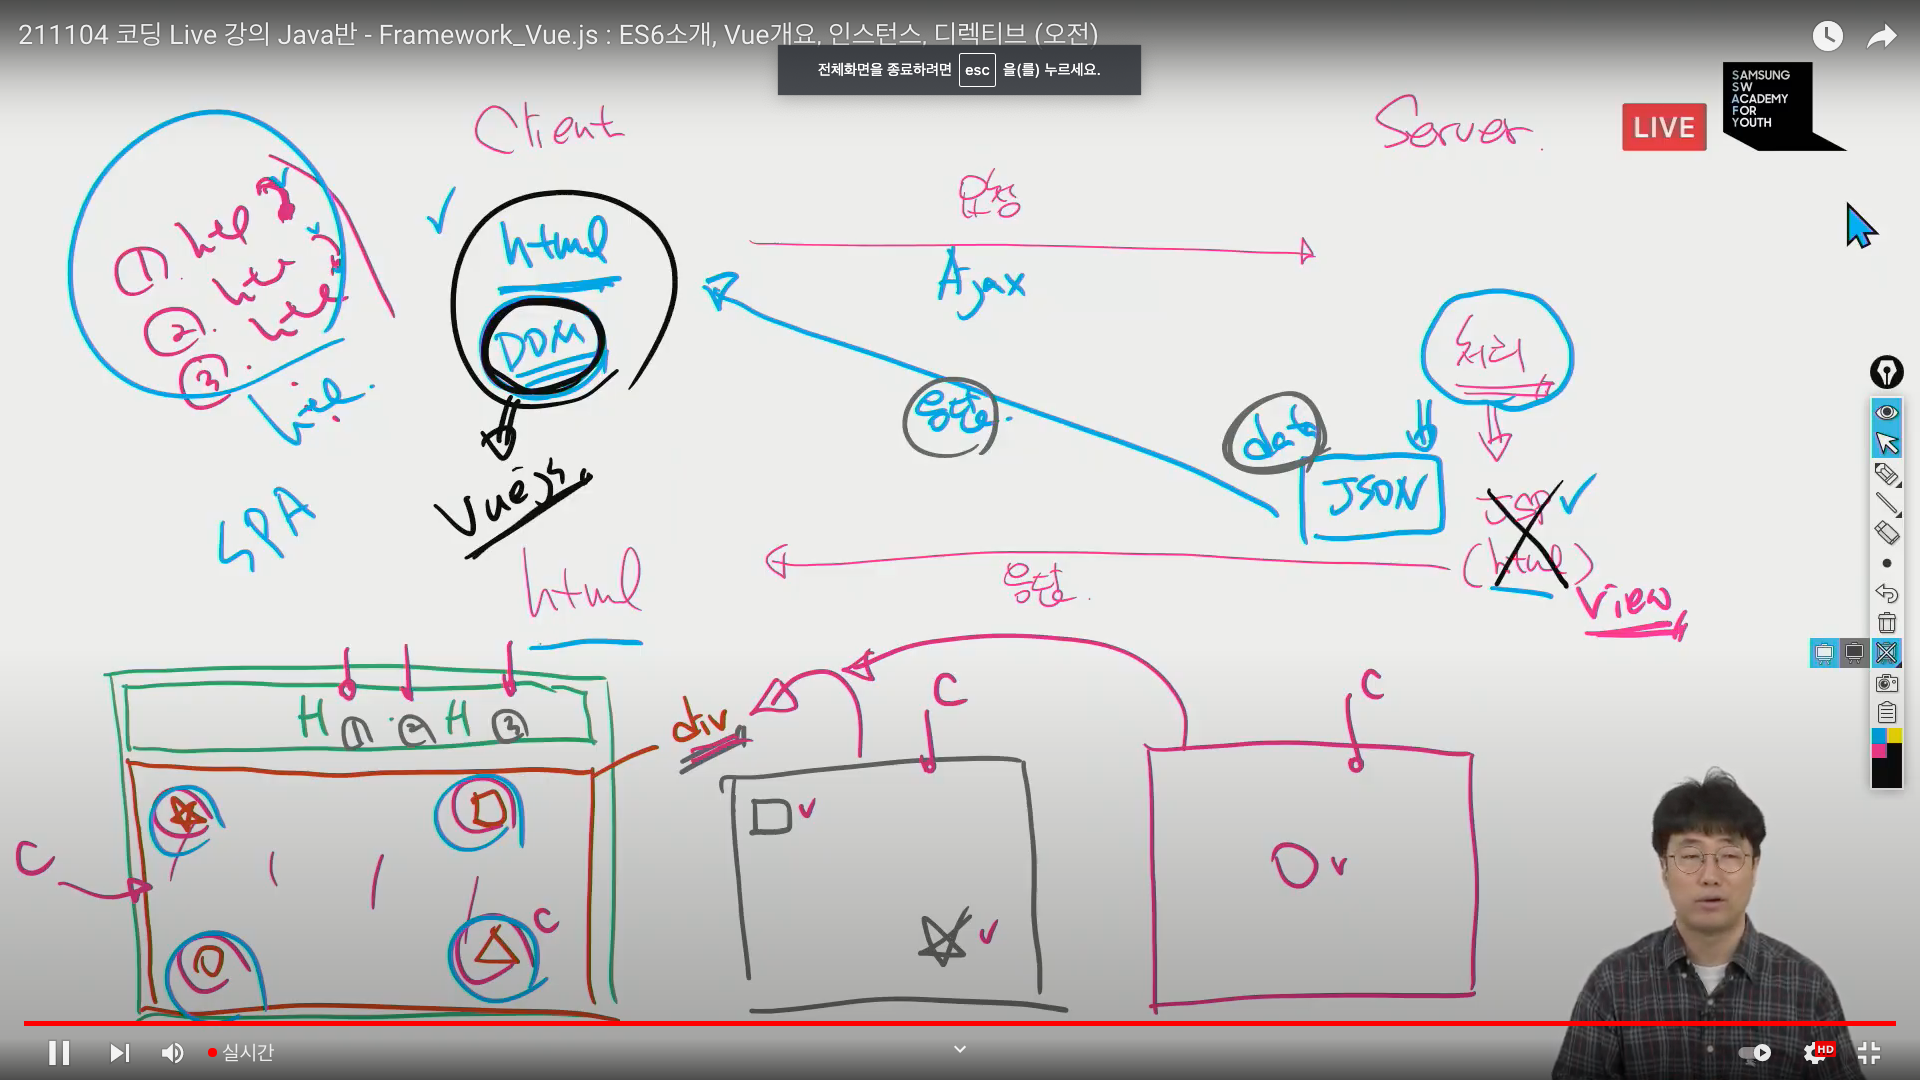 211104 코딩 Live 강의 Java반 - Framework_Vue.js : ES6소개, Vue개요, 인스턴스, 디렉티브 (오전)
전체화면을 종료하려면 esc 을(를) 누르세요.
LIVE
SAMSUNG
SW
ACADEMY
FOR
YOUTH
Client
Server.
요청
Ajax
① html
② html
③ html
html
DOM
Vue.js
SPA
html
처리
응답.
data
JSON
JSP
(html)
view
응답.
H ① ② H ③
div
C
C
C
C
v
v
v
실시간
HD